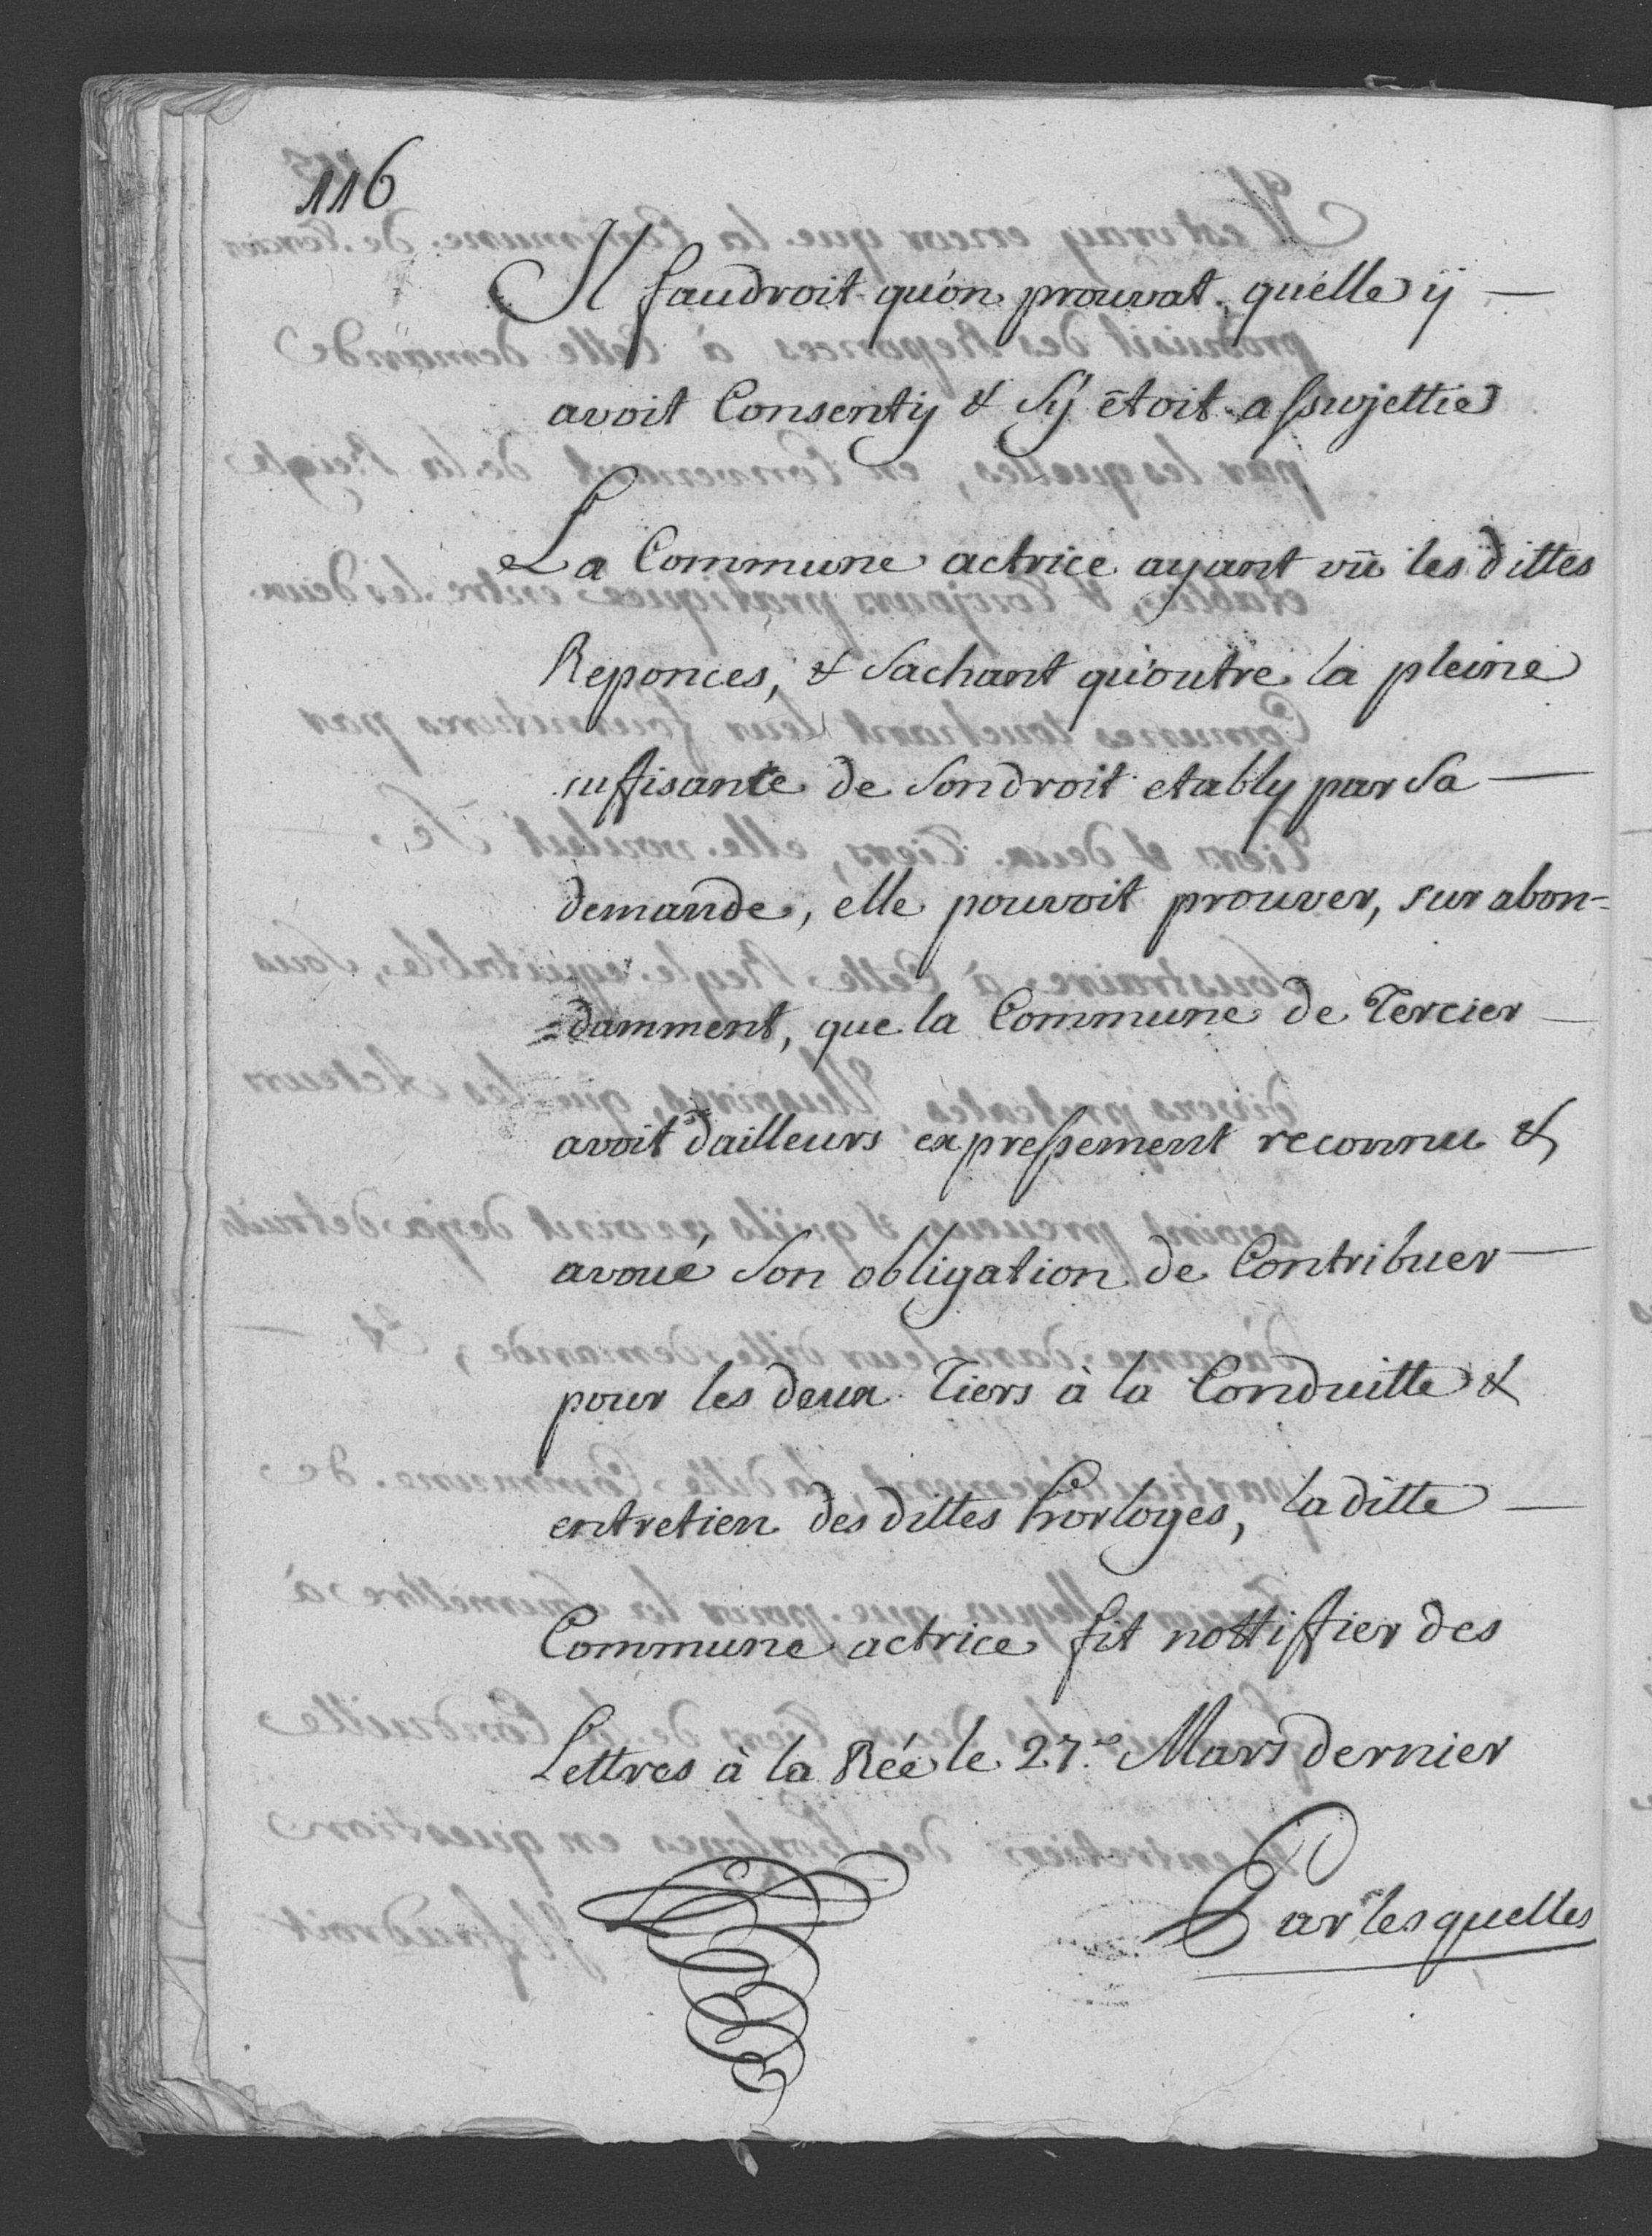 116
Il faudroit qu'on prouvat, qu'elle ÿ —
avoit Consentÿ & s'ÿ étoit assujettie
La Commune actrice ayant vû les dittes
Reponces, & sachant qu'outre la pleine
suffisante de son droit etably par sa —
demande, elle pouvoit prouver, sur abon-
=damment, que la Commune de Tercier —
avoit d'ailleurs expressement reconnu &
avoué son obligation de Contribuer —
pour les deux Tiers à la Conduitte &
entretien des dittes horloges, la ditte —
Commune actrice fit nottiffier des
Lettres à la Rée le 27.e Mars dernier
Par lesquelles